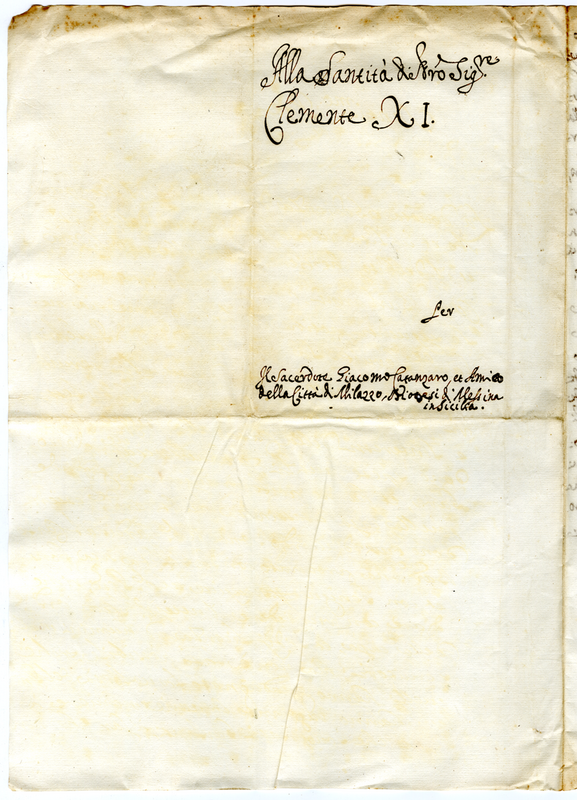 Alla Santità di Nro Sig.re
Clemente XI.
Per
Il Sacerdote Giacomo Catanzaro, et Amico
della Città di Milazzo, Diocesi di Messina
in Sicilia.